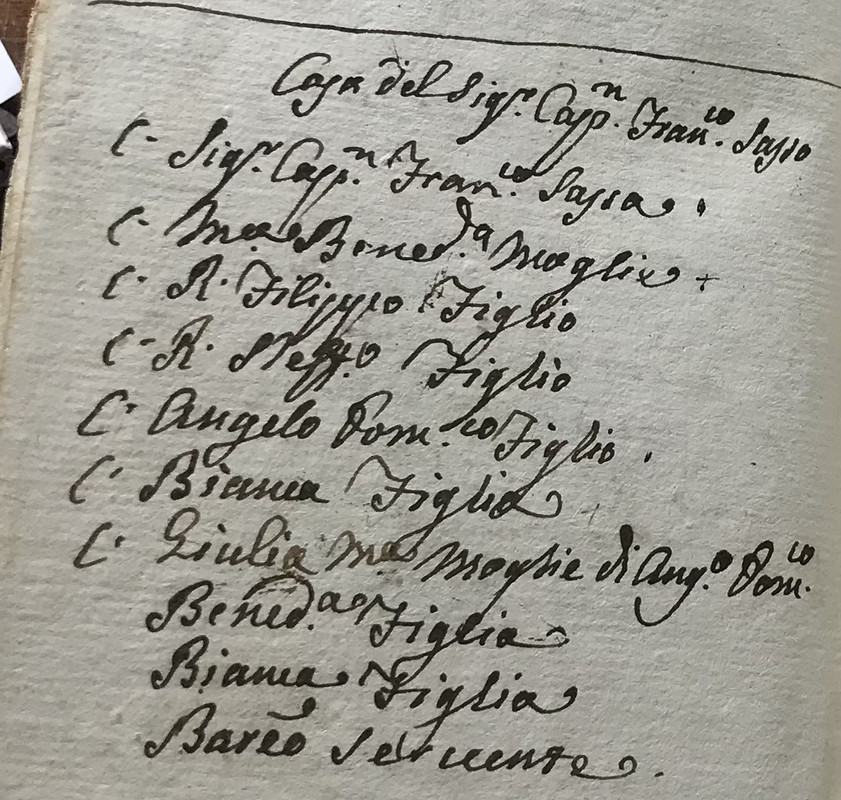 Casa del Sig.r Cap.n Fran.co Sasso
C. Sig.r Cap.n Fran.co Sasso.
C. M.a Bened.a Moglie +
C. R. Filippo Figlio
C. R. Steff.o Figlio
C. Angelo Dom.co Figlio.
C. Bianca Figlia
C. Giulia M.a Moglie di Ang.o Dom.co
Bened.a Figlia
Bianca Figlia
Bareo Servente.